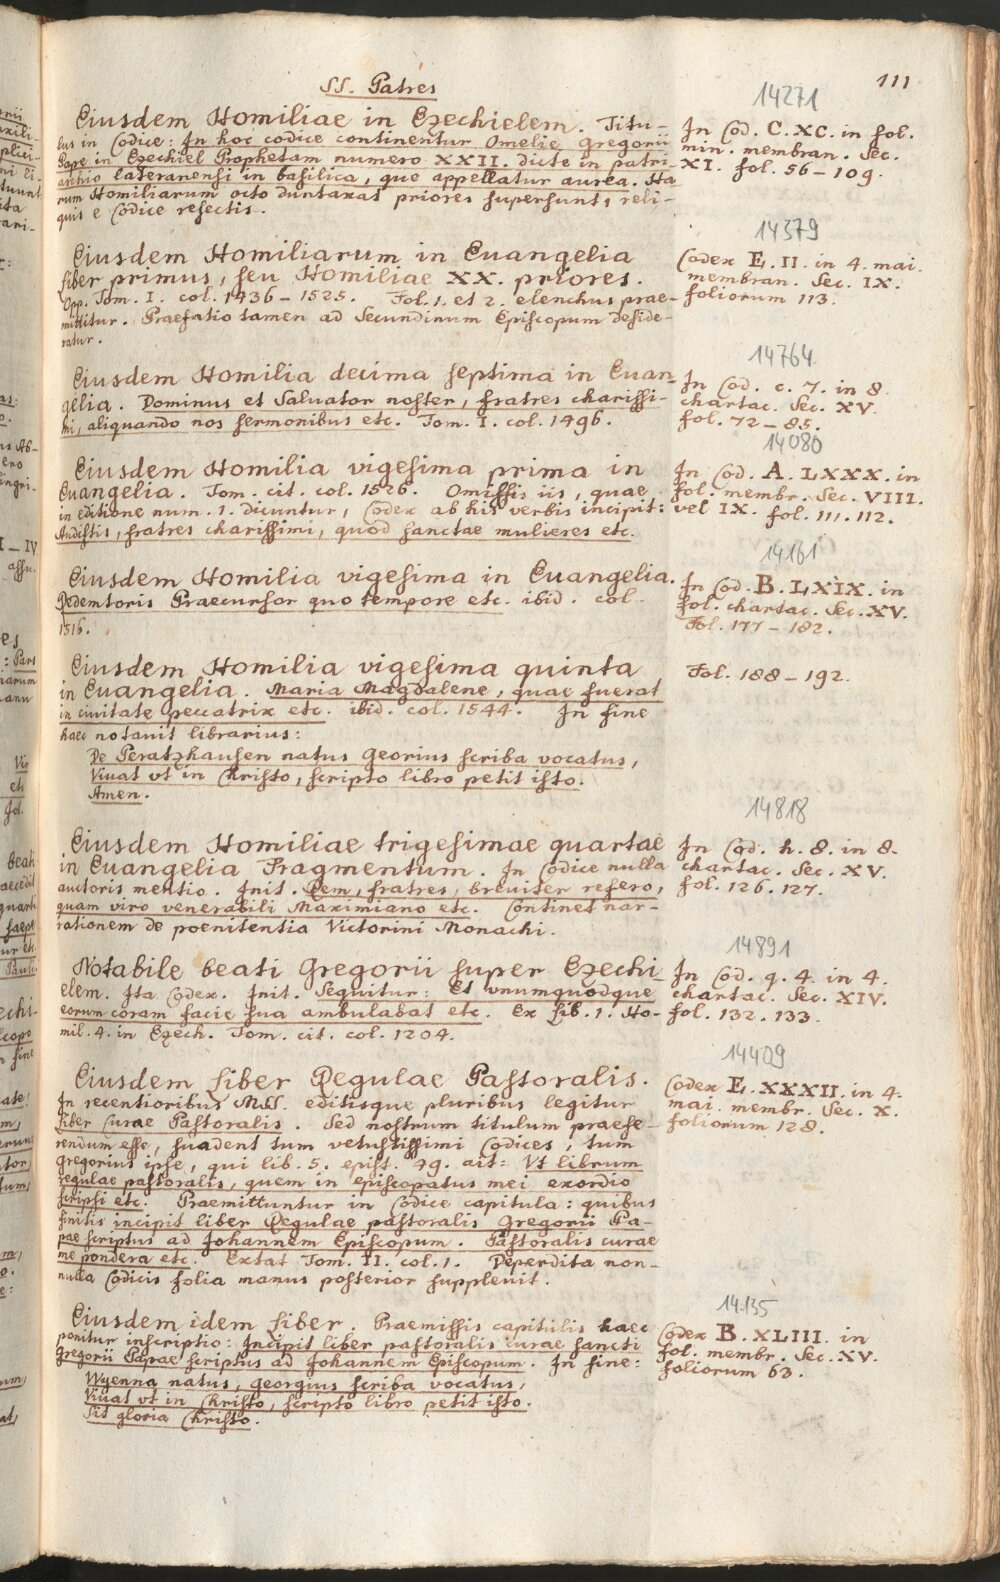 SS. Patres
111
14271
Eiusdem Homiliae in Ezechielem. Titu-
lus in Codice: In hoc codice continentur Omelie Gregorii
Pape in Ezechiel Prophetam numero XXII. dicte in patri-
archio lateranensi in basilica, que appellatur aurea. Ha
rum Homiliarum octo duntaxat priores supersunt, reli-
quis e Codice resectis.
In Cod. C. XC. in fol.
min. membran. Sec.
XI. fol. 56-109.
14379
Eiusdem Homiliarum in Euangelia
liber primus, seu Homiliae XX. priores.
Opp. Tom. I. col. 1436-1525. Fol. 1. et 2. elenchus prae-
mittitur. Praefatio tamen ad Secundinum Episcopum deside-
ratur.
Codex E. II. in 4. mai.
membran. Sec. IX.
foliorum 113.
14764
Eiusdem Homilia decima septima in Euan-
gelia. Dominus et Salvator noster, fratres charissi-
mi, aliquando nos sermonibus etc. Tom. I. col. 1496.
In Cod. c. 7. in 8.
chartac. Sec. XV.
fol. 72-85.
14080
Eiusdem Homilia vigesima prima in
Euangelia. Tom. cit. col. 1526. Omissis iis, quae
in editione num. 1. dicuntur, Codex ab his verbis incipit:
Audistis, fratres charissimi, quod sanctae mulieres etc.
In Cod. A. LXXX. in
fol. membr. Sec. VIII.
vel IX. fol. 111. 112.
14161
Eiusdem Homilia vigesima in Euangelia.
Redemtoris Praecursor quo tempore etc. ibid. col.
1516.
In Cod. B. LXIX. in
fol. chartac. Sec. XV.
Fol. 177-182.
Eiusdem Homilia vigesima quinta
in Euangelia. Maria Magdalene, quae fuerat
in ciuitate peccatrix etc. ibid. col. 1544. In fine
haec notauit librarius:
De Peratzhausen natus Georius scriba vocatus,
Viuat vt in Christo, scripto libro petit isto.
Amen.
Fol. 188-192.
14818
Eiusdem Homiliae trigesimae quartae
in Euangelia Fragmentum. In Codice nulla
auctoris mentio. Init. Rem, fratres, breuiter refero,
quam viro venerabili Maximiano etc. Continet nar-
rationem de poenitentia Victorini Monachi.
In Cod. h. 8. in 8.
chartac. Sec. XV.
fol. 126. 127.
14891
Notabile beati Gregorii super Ezechi
elem. Ita Codex. Init. Sequitur: Et vnumquodque
eorum coram facie sua ambulabat etc. Ex Lib. 1. Ho-
mil. 4. in Ezech. Tom. cit. col. 1204.
In Cod. q. 4. in 4.
chartac. Sec. XIV.
fol. 132. 133.
14409
Eiusdem liber Regulae Pastoralis.
In recentioribus MSS. editisque pluribus legitur
Liber Curae Pastoralis. Sed nostrum titulum praefe-
rendum esse, suadent tum vetustissimi Codices, tum
Gregorius ipse, qui lib. 5. epist. 49. ait: Vt librum
regulae pastoralis, quem in episcopatus mei exordio
scripsi etc. Praemittuntur in Codice capitula: quibus
finitis incipit liber Regulae pastoralis Gregorii Pa-
pae scriptus ad Johannem Episcopum. Pastoralis curae
me pondera etc. Extat Tom. II. col. 1. Deperdita non-
nulla Codicis folia manus posterior suppleuit.
Codex E. XXXII. in 4.
mai. membr. Sec. X.
foliorum 128.
14135
Eiusdem idem liber. Praemissis capitulis haec
ponitur inscriptio: Incipit liber pastoralis curae sancti
Gregorii Papae scriptus ad Johannem Episcopum. In fine:
Wyenna natus, Georgius scriba vocatus,
Viuat vt in Christo, scripto libro petit isto.
Sit gloria Christo.
Codex B. XLIII. in
fol. membr. Sec. XV.
foliorum 63.